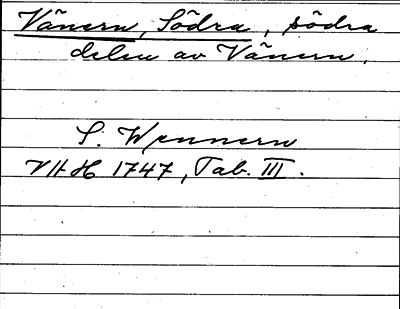 Vänern, Södra, södra
delen av Vänern.
S. Wennern
VHH 1747, Tab. III.